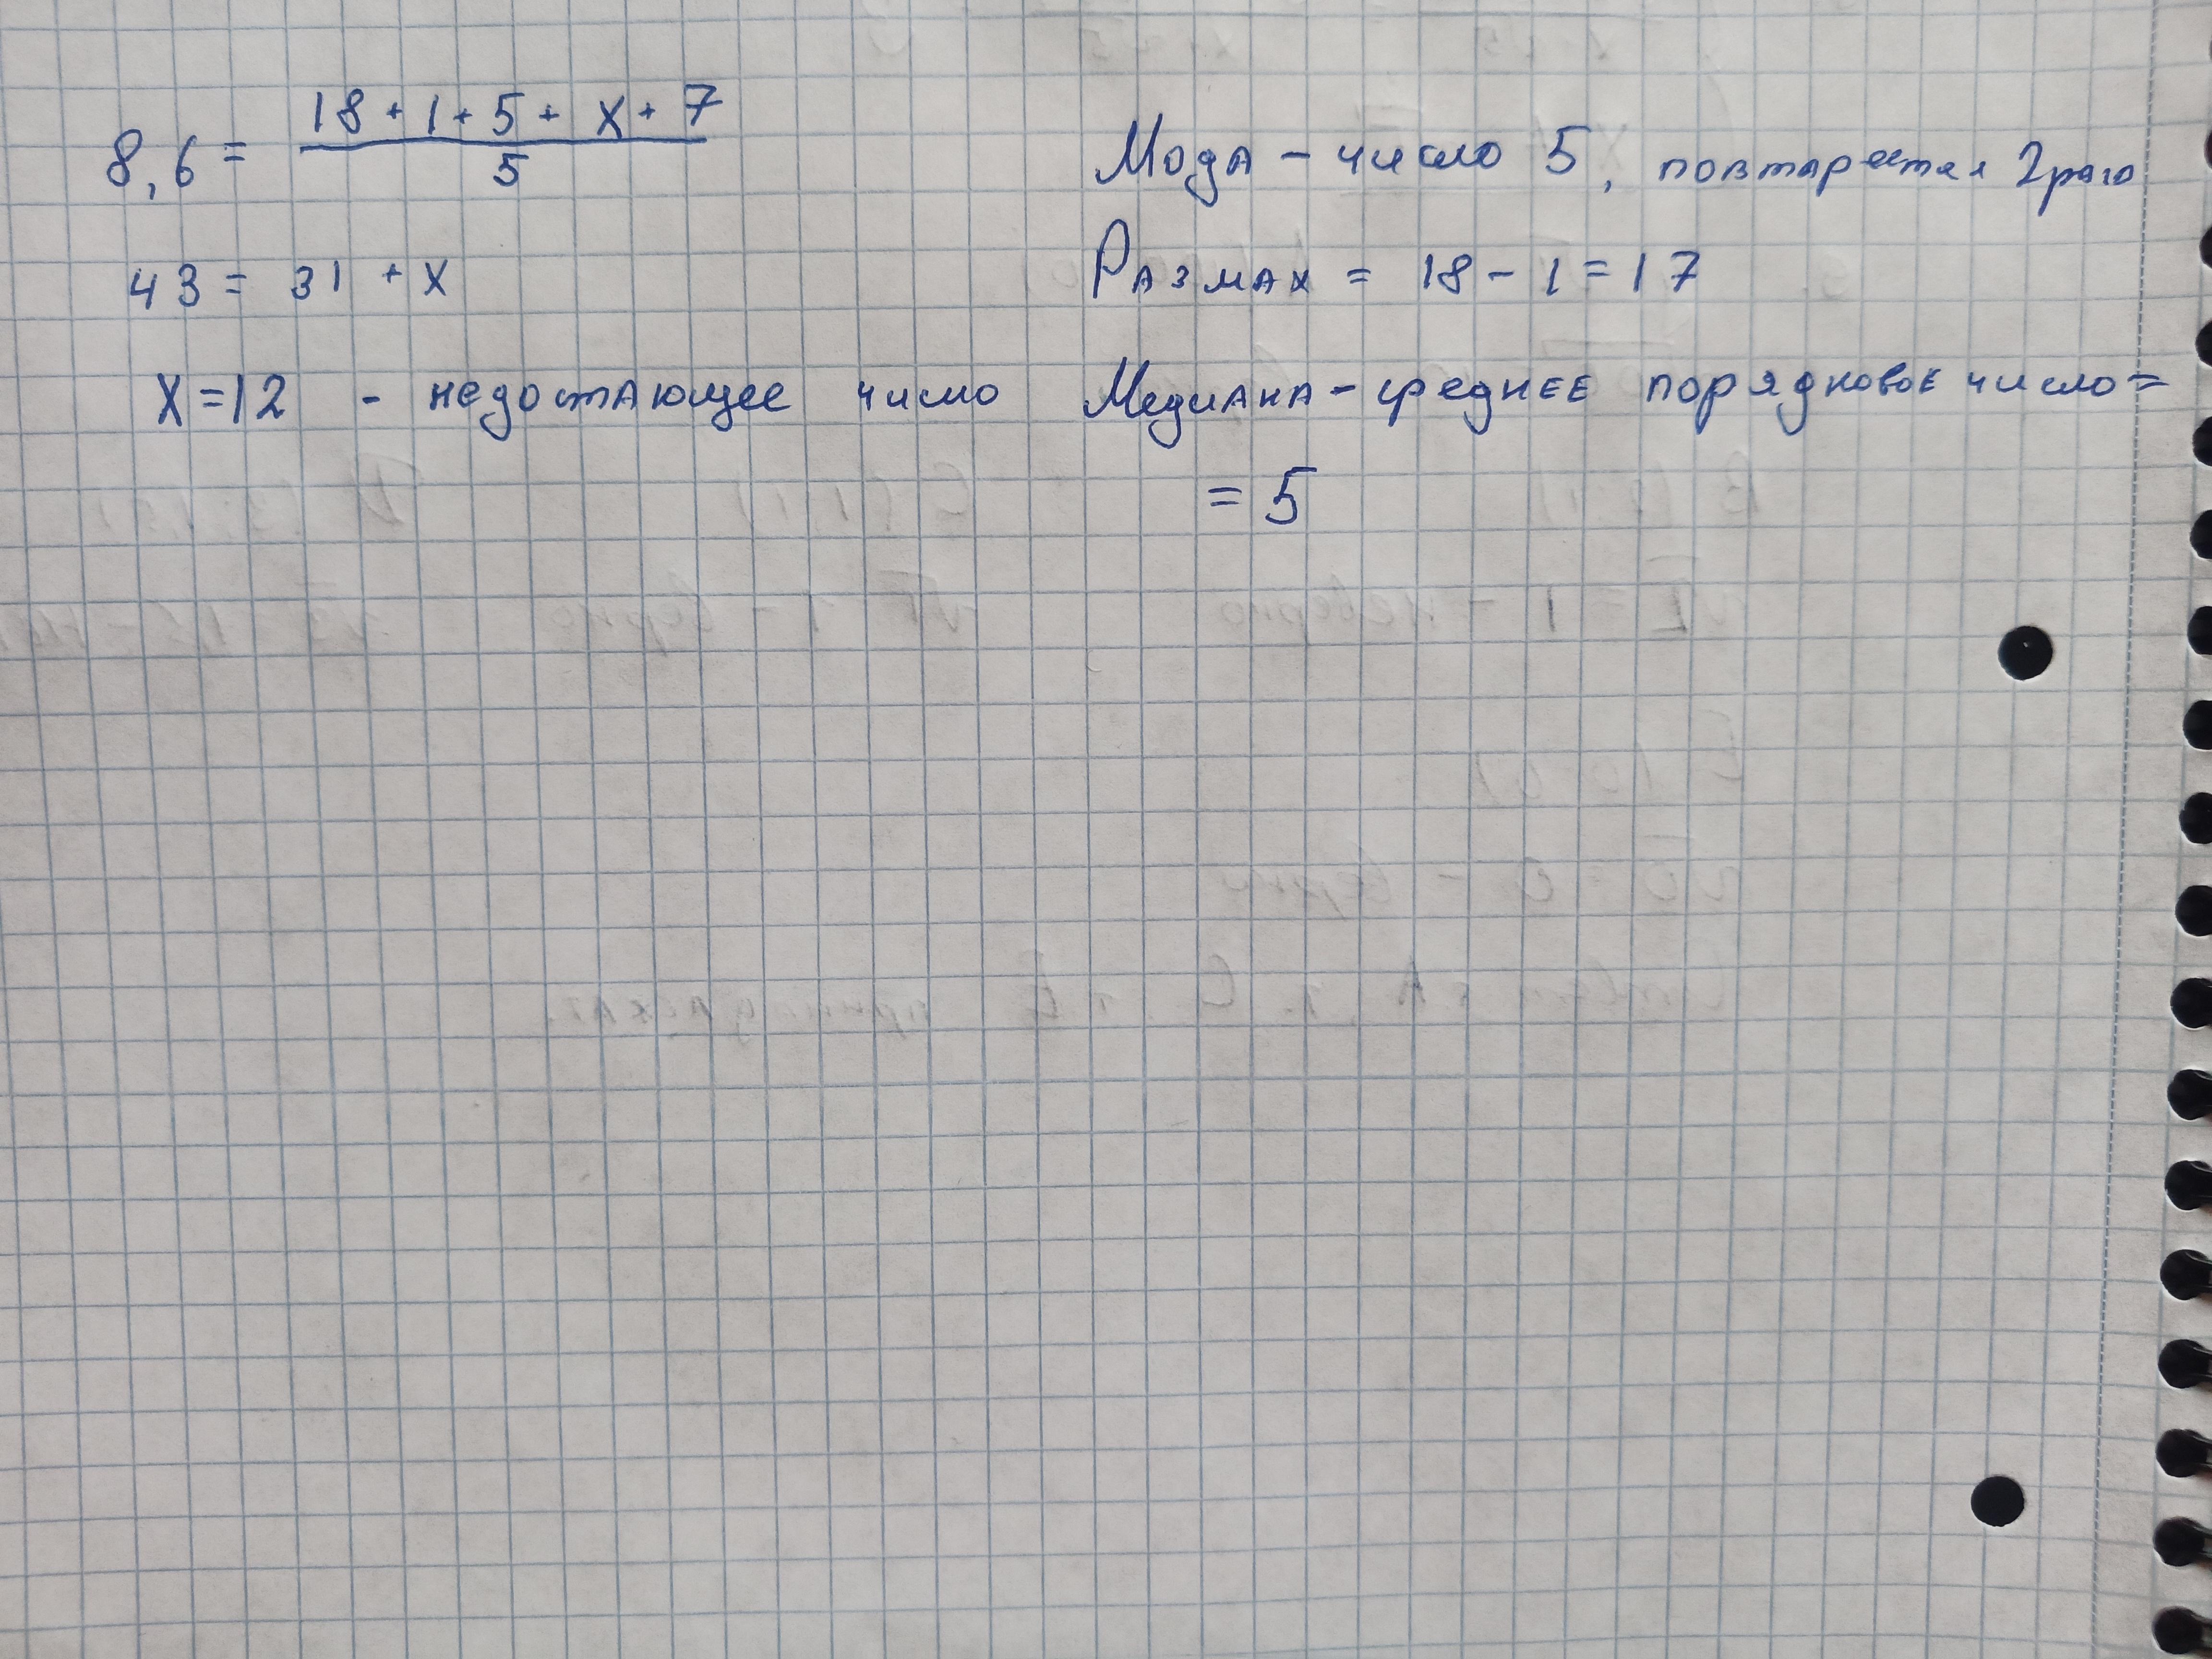 8,6 = (18 + 1 + 5 + x + 7) / 5
43 = 31 + x
x = 12 - недостающее число
Мода - число 5, повтаряется 2 раза
Размах = 18 - 1 = 17
Медиана - среднее порядковое число =
= 5